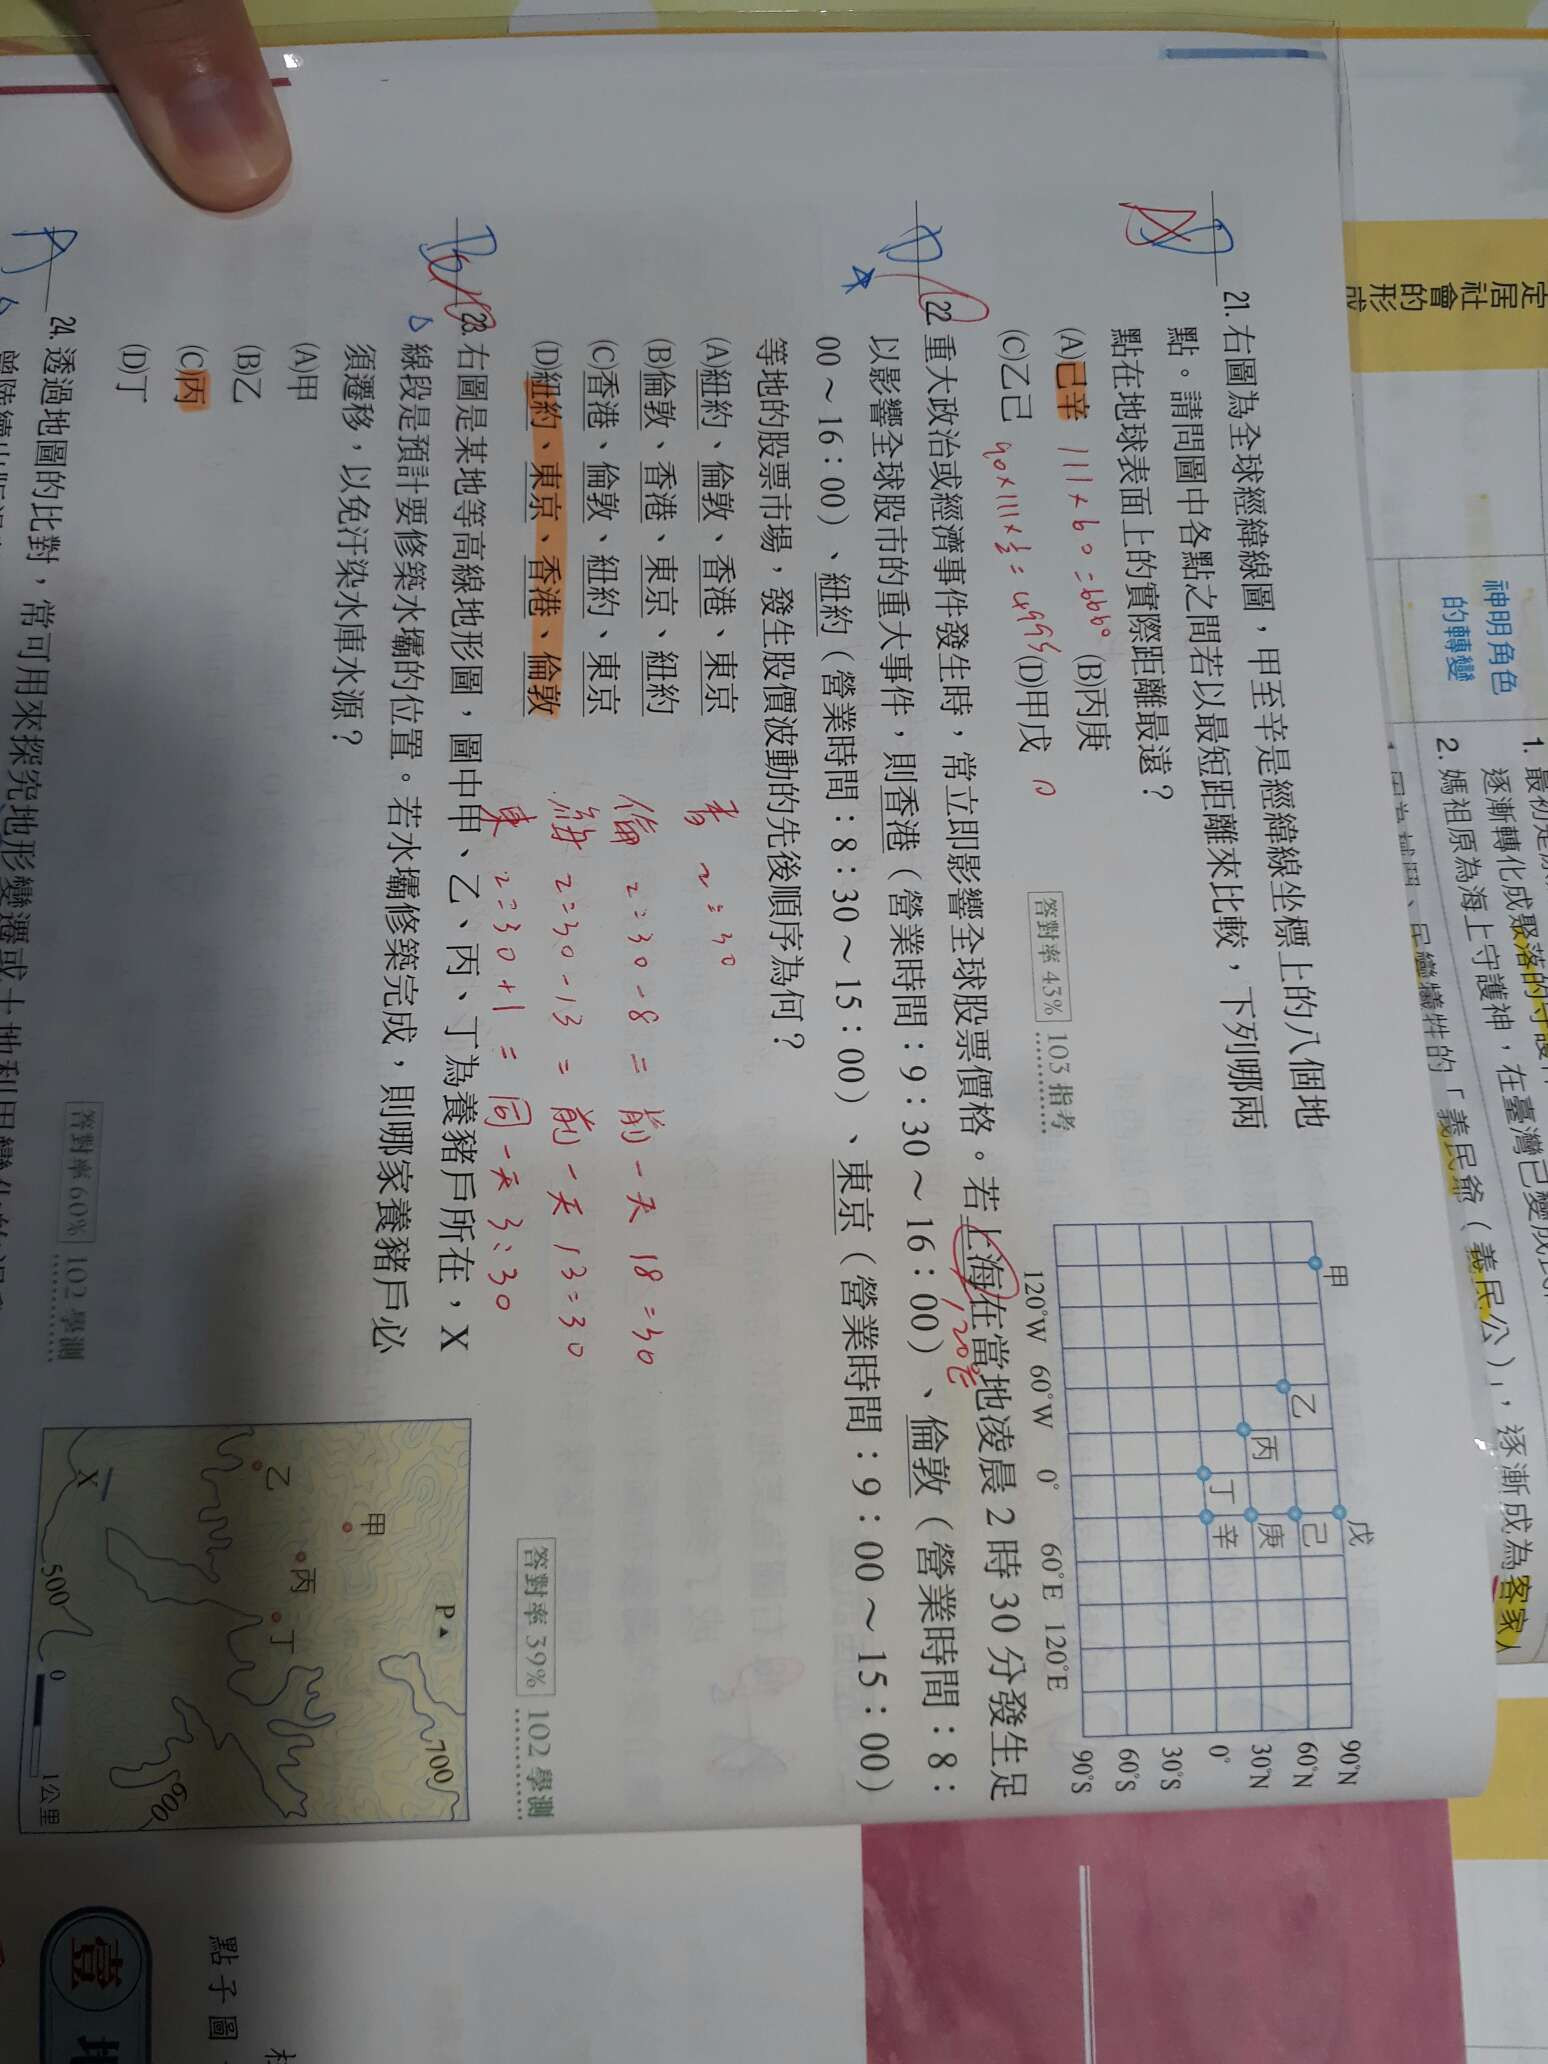 定居社會的形成
神明角色
的轉變
逐漸轉化成聚落的守護
2. 媽祖原為海上守護神，在臺灣已變成
犧牲的「義民爺（義民公）」，逐漸成為客家人
21. 右圖為全球經緯線圖，甲至辛是經緯線坐標上的八個地
點。請問圖中各點之間若以最短距離來比較，下列哪兩
點在地球表面上的實際距離最遠？
(A)己辛 111×60=6660 (B)丙庚
(C)乙己 90×111×½=4995 (D)甲戊 0
答對率 43% 103 指考
甲
乙
丙
丁
戊
己
庚
辛
90°N
60°N
30°N
0°
30°S
60°S
90°S
120°W 60°W 0° 60°E 120°E
22. 重大政治或經濟事件發生時，常立即影響全球股票價格。若上海在當地凌晨 2 時 30 分發生足
120°E
以影響全球股市的重大事件，則香港（營業時間：9：30～16：00）、倫敦（營業時間：8：
00～16：00）、紐約（營業時間：8：30～15：00）、東京（營業時間：9：00～15：00）
等地的股票市場，發生股價波動的先後順序為何？
(A)紐約、倫敦、香港、東京
(B)倫敦、香港、東京、紐約
(C)香港、倫敦、紐約、東京
(D)紐約、東京、香港、倫敦
香 2:30
倫 2:30-8=前一天18:30
紐 2:30-13=前一天13:30
東 2:30+1=同一天3:30
答對率 39% 102 學測
23. 右圖是某地等高線地形圖，圖中甲、乙、丙、丁為養豬戶所在，X
線段是預計要修築水壩的位置。若水壩修築完成，則哪家養豬戶必
須遷移，以免汙染水庫水源？
(A)甲
(B)乙
(C)丙
(D)丁
答對率 60% 102 學測
P▲
甲
乙
丙
丁
X
700
600
500
0 1公里
24. 透過地圖的比對，常可用來探究地形變遷或土地利用變化的
點子圖